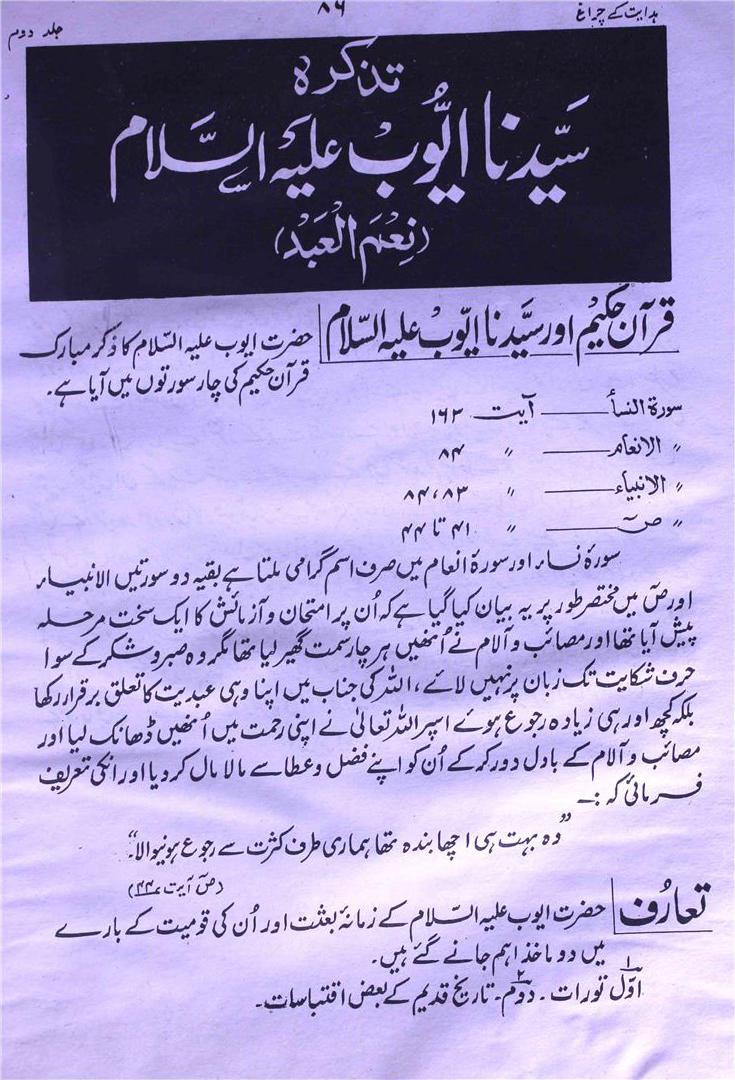 ہدایت کے چراغ
۸۶
جلد دوم
تذکرہ
سَیّدنا ایُّوبْ علیہ السَّلام
(نِعْمَ الْعَبْدُ)
قرآن حکیم اور سیّدنا ایّوبْ علیہ السّلام
حضرت ایوب علیہ السّلام کا ذکر مبارک
قرآن حکیم کی چار سورتوں میں آیا ہے۔
سورۃ النسأ ـــــ آیت ۱۶۳
〃 الانعام ـــــ 〃 ۸۴
〃 الانبیاء ـــــ 〃 ۸۳، ۸۴
〃 صٓ ـــــ 〃 ۴۱ تا ۴۴
سورۂ نساء اور سورۂ انعام میں صرف اسم گرامی ملتا ہے بقیہ دو سورتیں الانبیاء
اور صٓ میں مختصر طور پر یہ بیان کیا گیا ہے کہ اُن پر امتحان و آزمائش کا ایک سخت مرحلہ
پیش آیا تھا اور مصائب و آلام نے اُنھیں ہر چار سمت گھیر لیا تھا مگر وہ صبر و شکر کے سوا
حرف شکایت تک زبان پر نہیں لائے، اللہ کی جناب میں اپنا وہی عبدیت کا تعلق برقرار رکھا
بلکہ کچھ اور ہی زیادہ رجوع ہوئے اسپر اللہ تعالیٰ نے اپنی رحمت میں اُنھیں ڈھانک لیا اور
مصائب و آلام کے بادل دور کر کے اُن کو اپنے فضل و عطا سے مالا مال کر دیا اور انکی تعریف
فرمائی کہ :۔
”وہ بہت ہی اچھا بندہ تھا ہماری طرف کثرت سے رجوع ہونیوالا۔“
(صٓ آیت ۴۴)
تعارُف
حضرت ایوب علیہ السّلام کے زمانۂ بعثت اور اُن کی قومیت کے بارے
میں دو ماخذ اہم جانے گئے ہیں۔
۱ اوّل تورات ۔ ۲ دوّم۔ تاریخ قدیم کے بعض اقتباسات۔